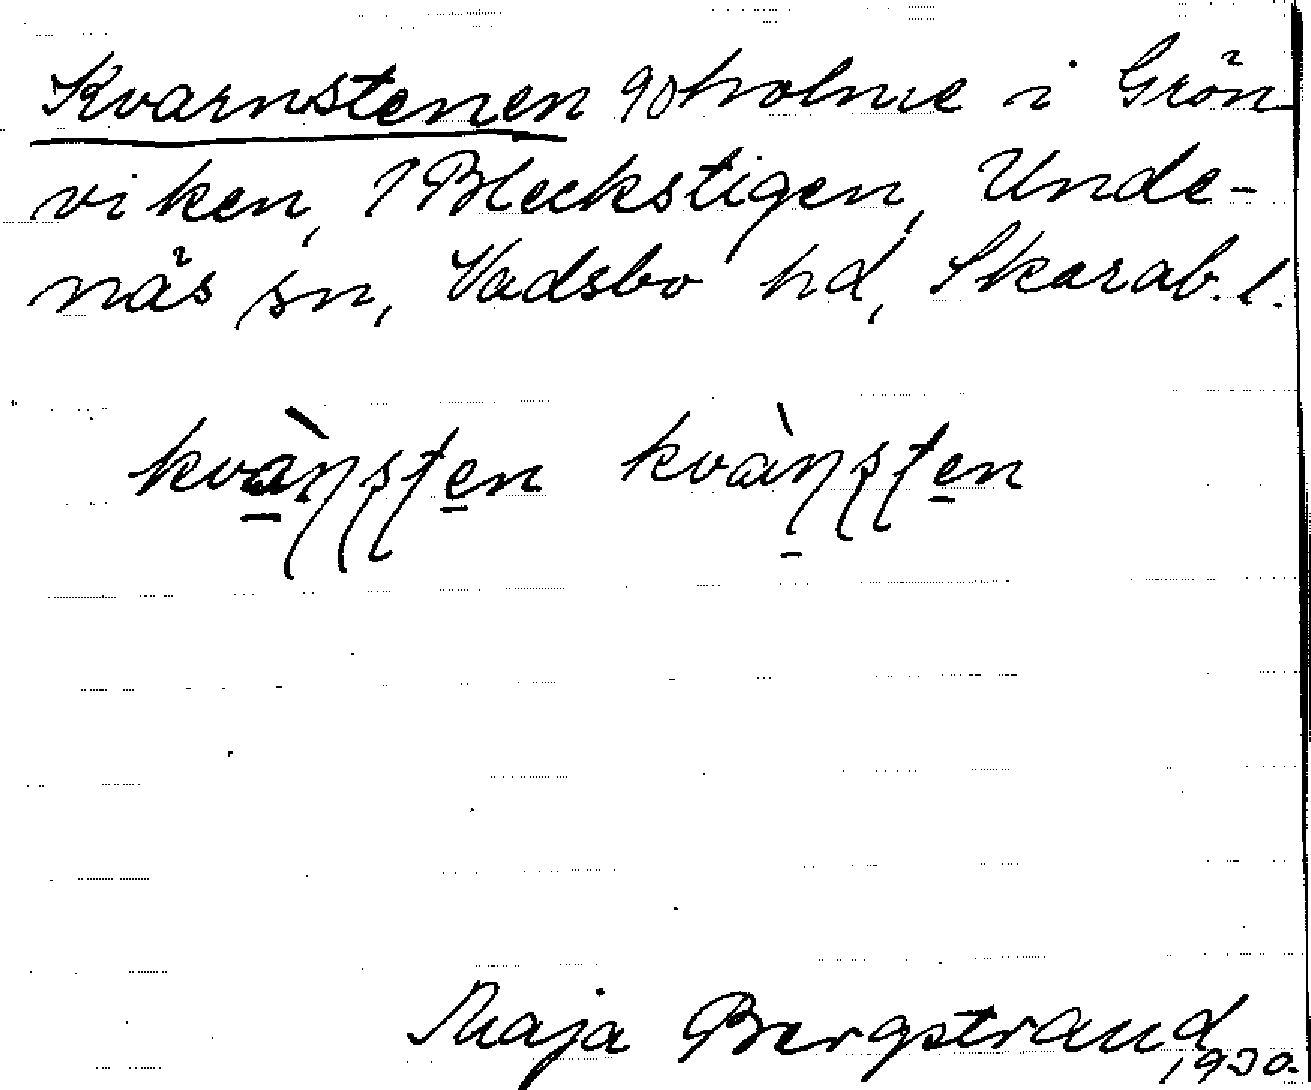 Kvarnstenen 90 holme i Grön
viken, 1 Bleckstigen, Unde-
näs sn, Vadsbo hd, Skarab. l.
kvànsten kvànsten
Maja Bergstrand
1930.